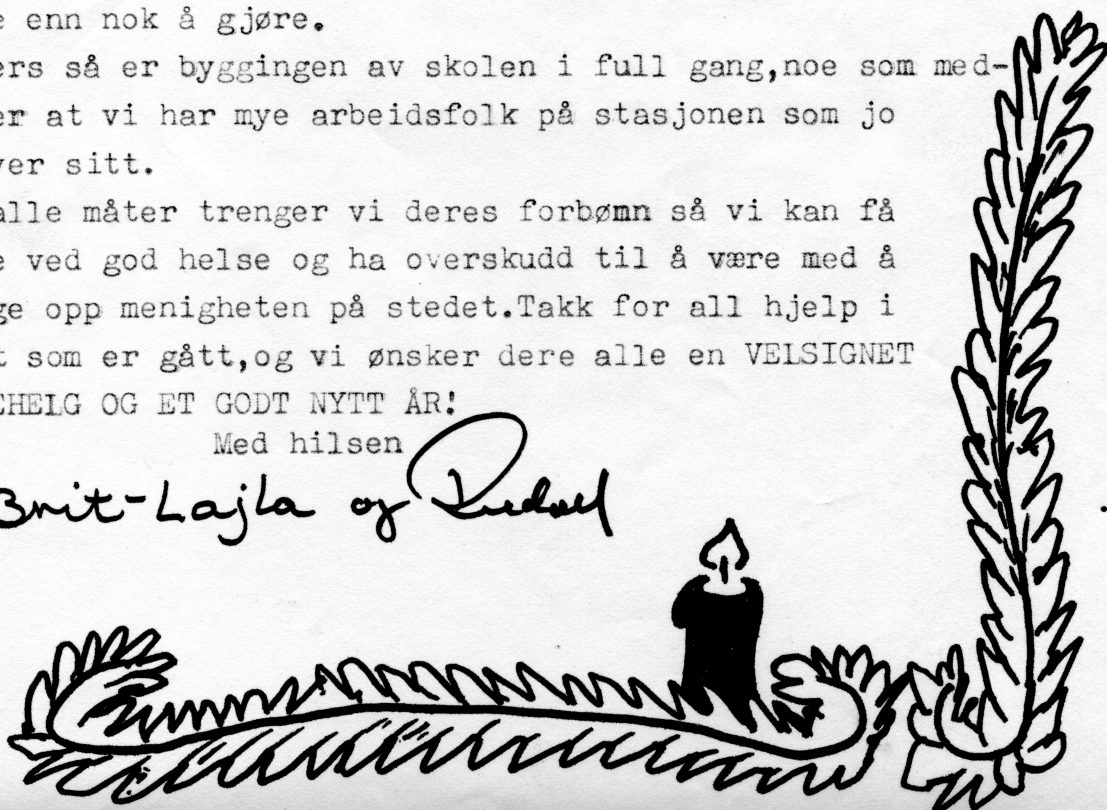 e enn nok å gjøre.
ers så er byggingen av skolen i full gang,noe som med-
er at vi har mye arbeidsfolk på stasjonen som jo
ver sitt.
alle måter trenger vi deres forbømn så vi kan få
e ved god helse og ha overskudd til å være med å
ge opp menigheten på stedet.Takk for all hjelp i
t som er gått,og vi ønsker dere alle en VELSIGNET
EHELG OG ET GODT NYTT ÅR!
Med hilsen
Brit-Lajla og Rudolf